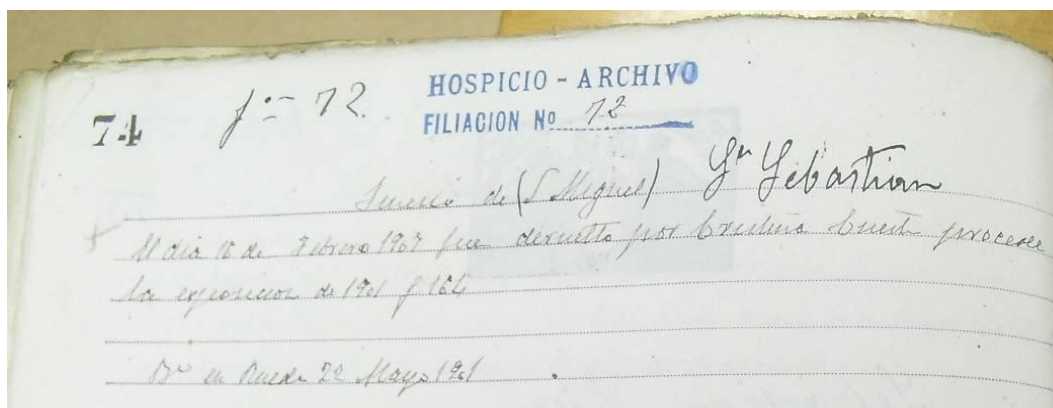 74 fº- 72. HOSPICIO - ARCHIVO
FILIACION Nº 72
de (S Miguel) Sn Sebastian
El dia 16 de Febrero 1907 fue devuelto por Cristina procede
la exposicion de 1901 f 164
Bº en Rueda 22 Mayo 1901